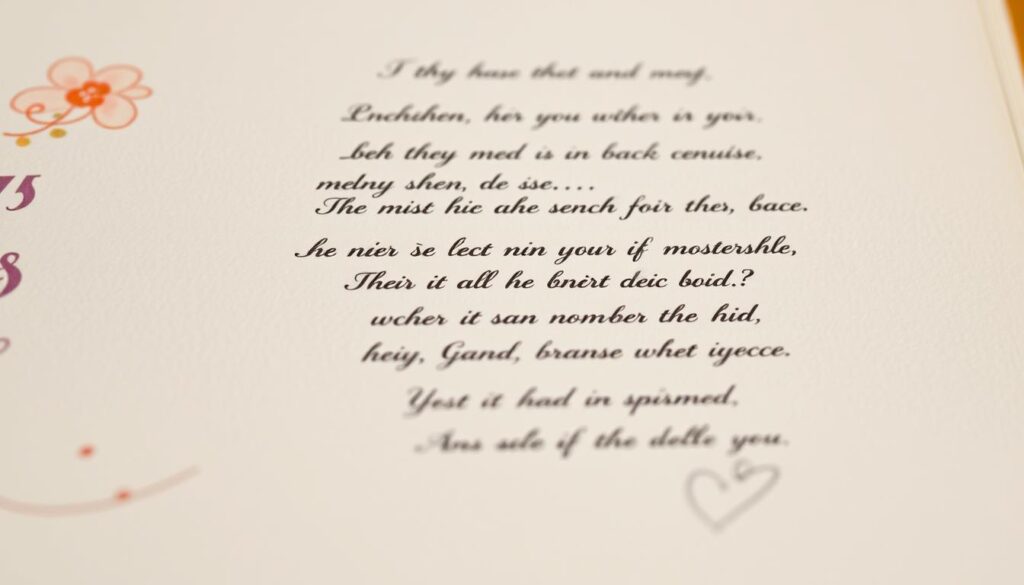 75
8
I thy hase thet and mesy,
Lnchihen, her you wther ir yoir.
beh they med is in back cenuise,
melny shen, de sse....
The mist hic ahe sench foir ther, bace.
he nier se lect nin your if mostershle,
Their it all he bnirt deic boid.?
wcher it san nomber the hid,
heiy, Gand, branse whet iyecce.
Yest it had in spirmed,
Ans sele if the delle you.